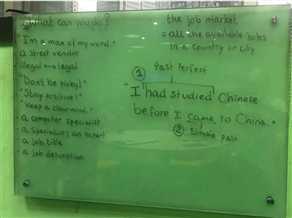 What can you do?
"I'm a man of my word."
a street vendor
illegal ↔ legal
"Don't be picky!"
"Stay positive!"
"Keep a clear mind."
a computer specialist
a specialist on
a job title
a job description
the job market
= all the available jobs
in a country or city
① Past Perfect
"I had studied Chinese
before I came to China."
② Simple past